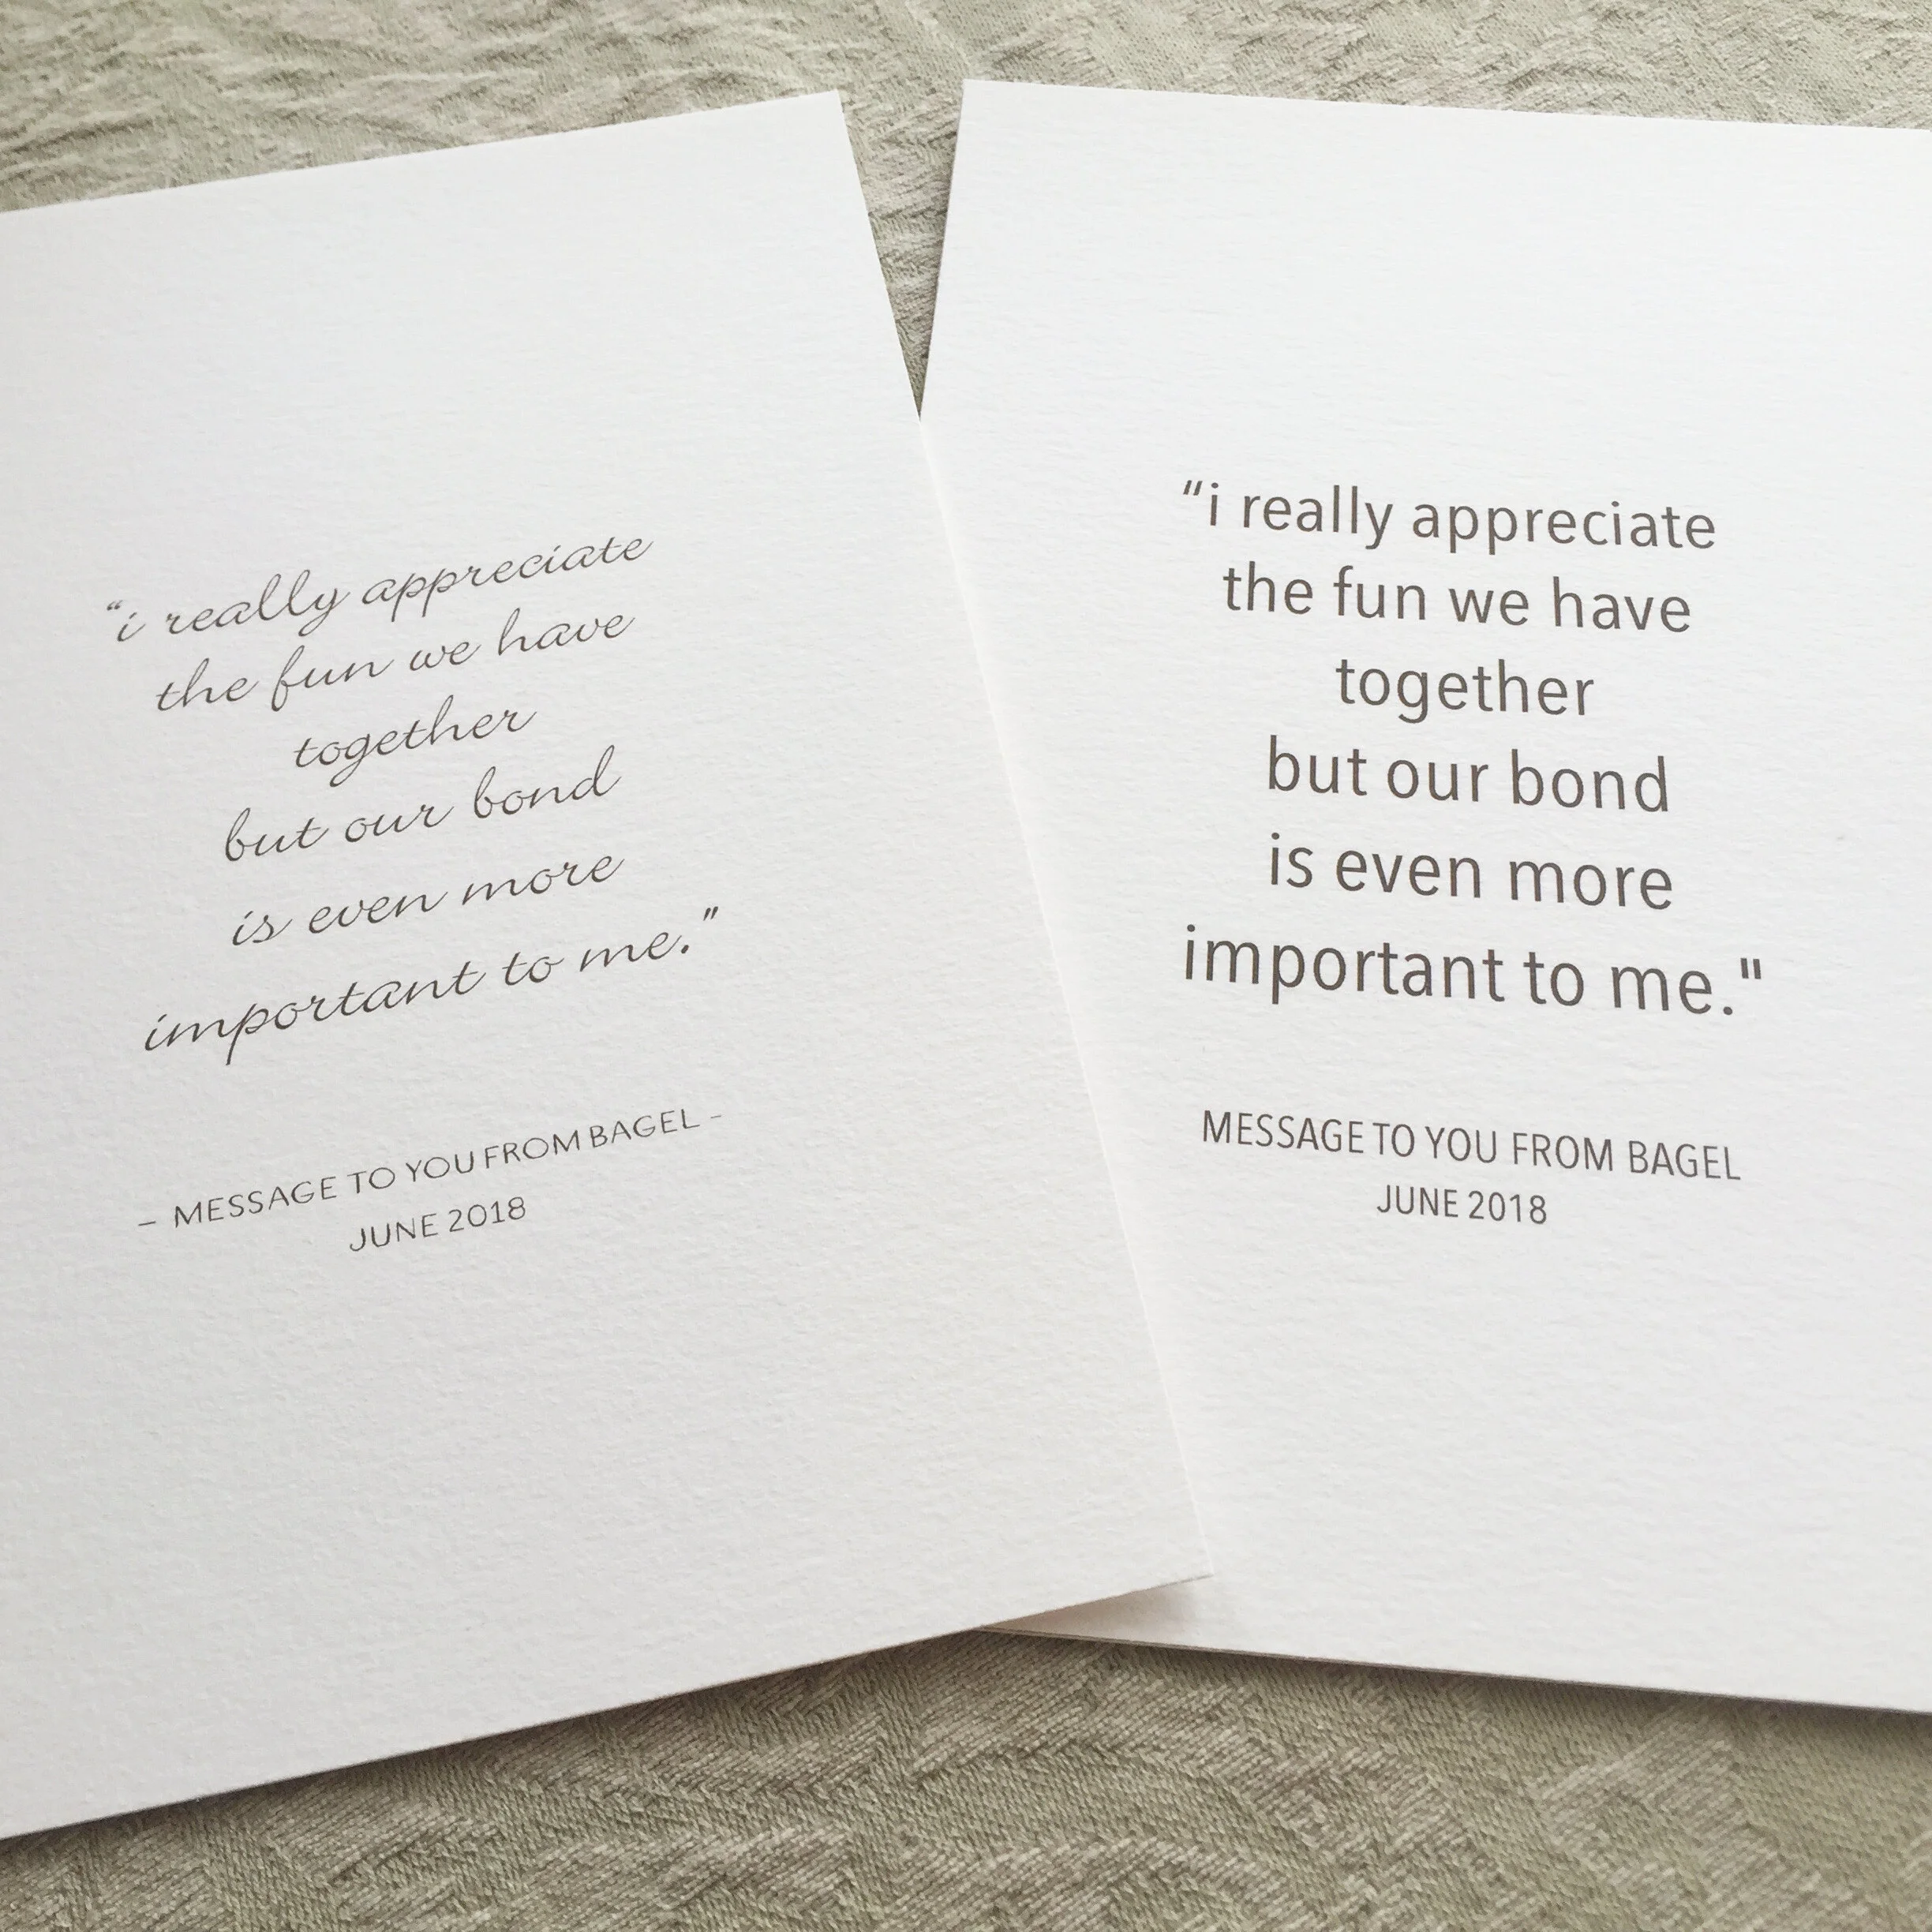 “i really appreciate
the fun we have
together
but our bond
is even more
important to me."
– MESSAGE TO YOU FROM BAGEL –
JUNE 2018
“i really appreciate
the fun we have
together
but our bond
is even more
important to me."
MESSAGE TO YOU FROM BAGEL
JUNE 2018